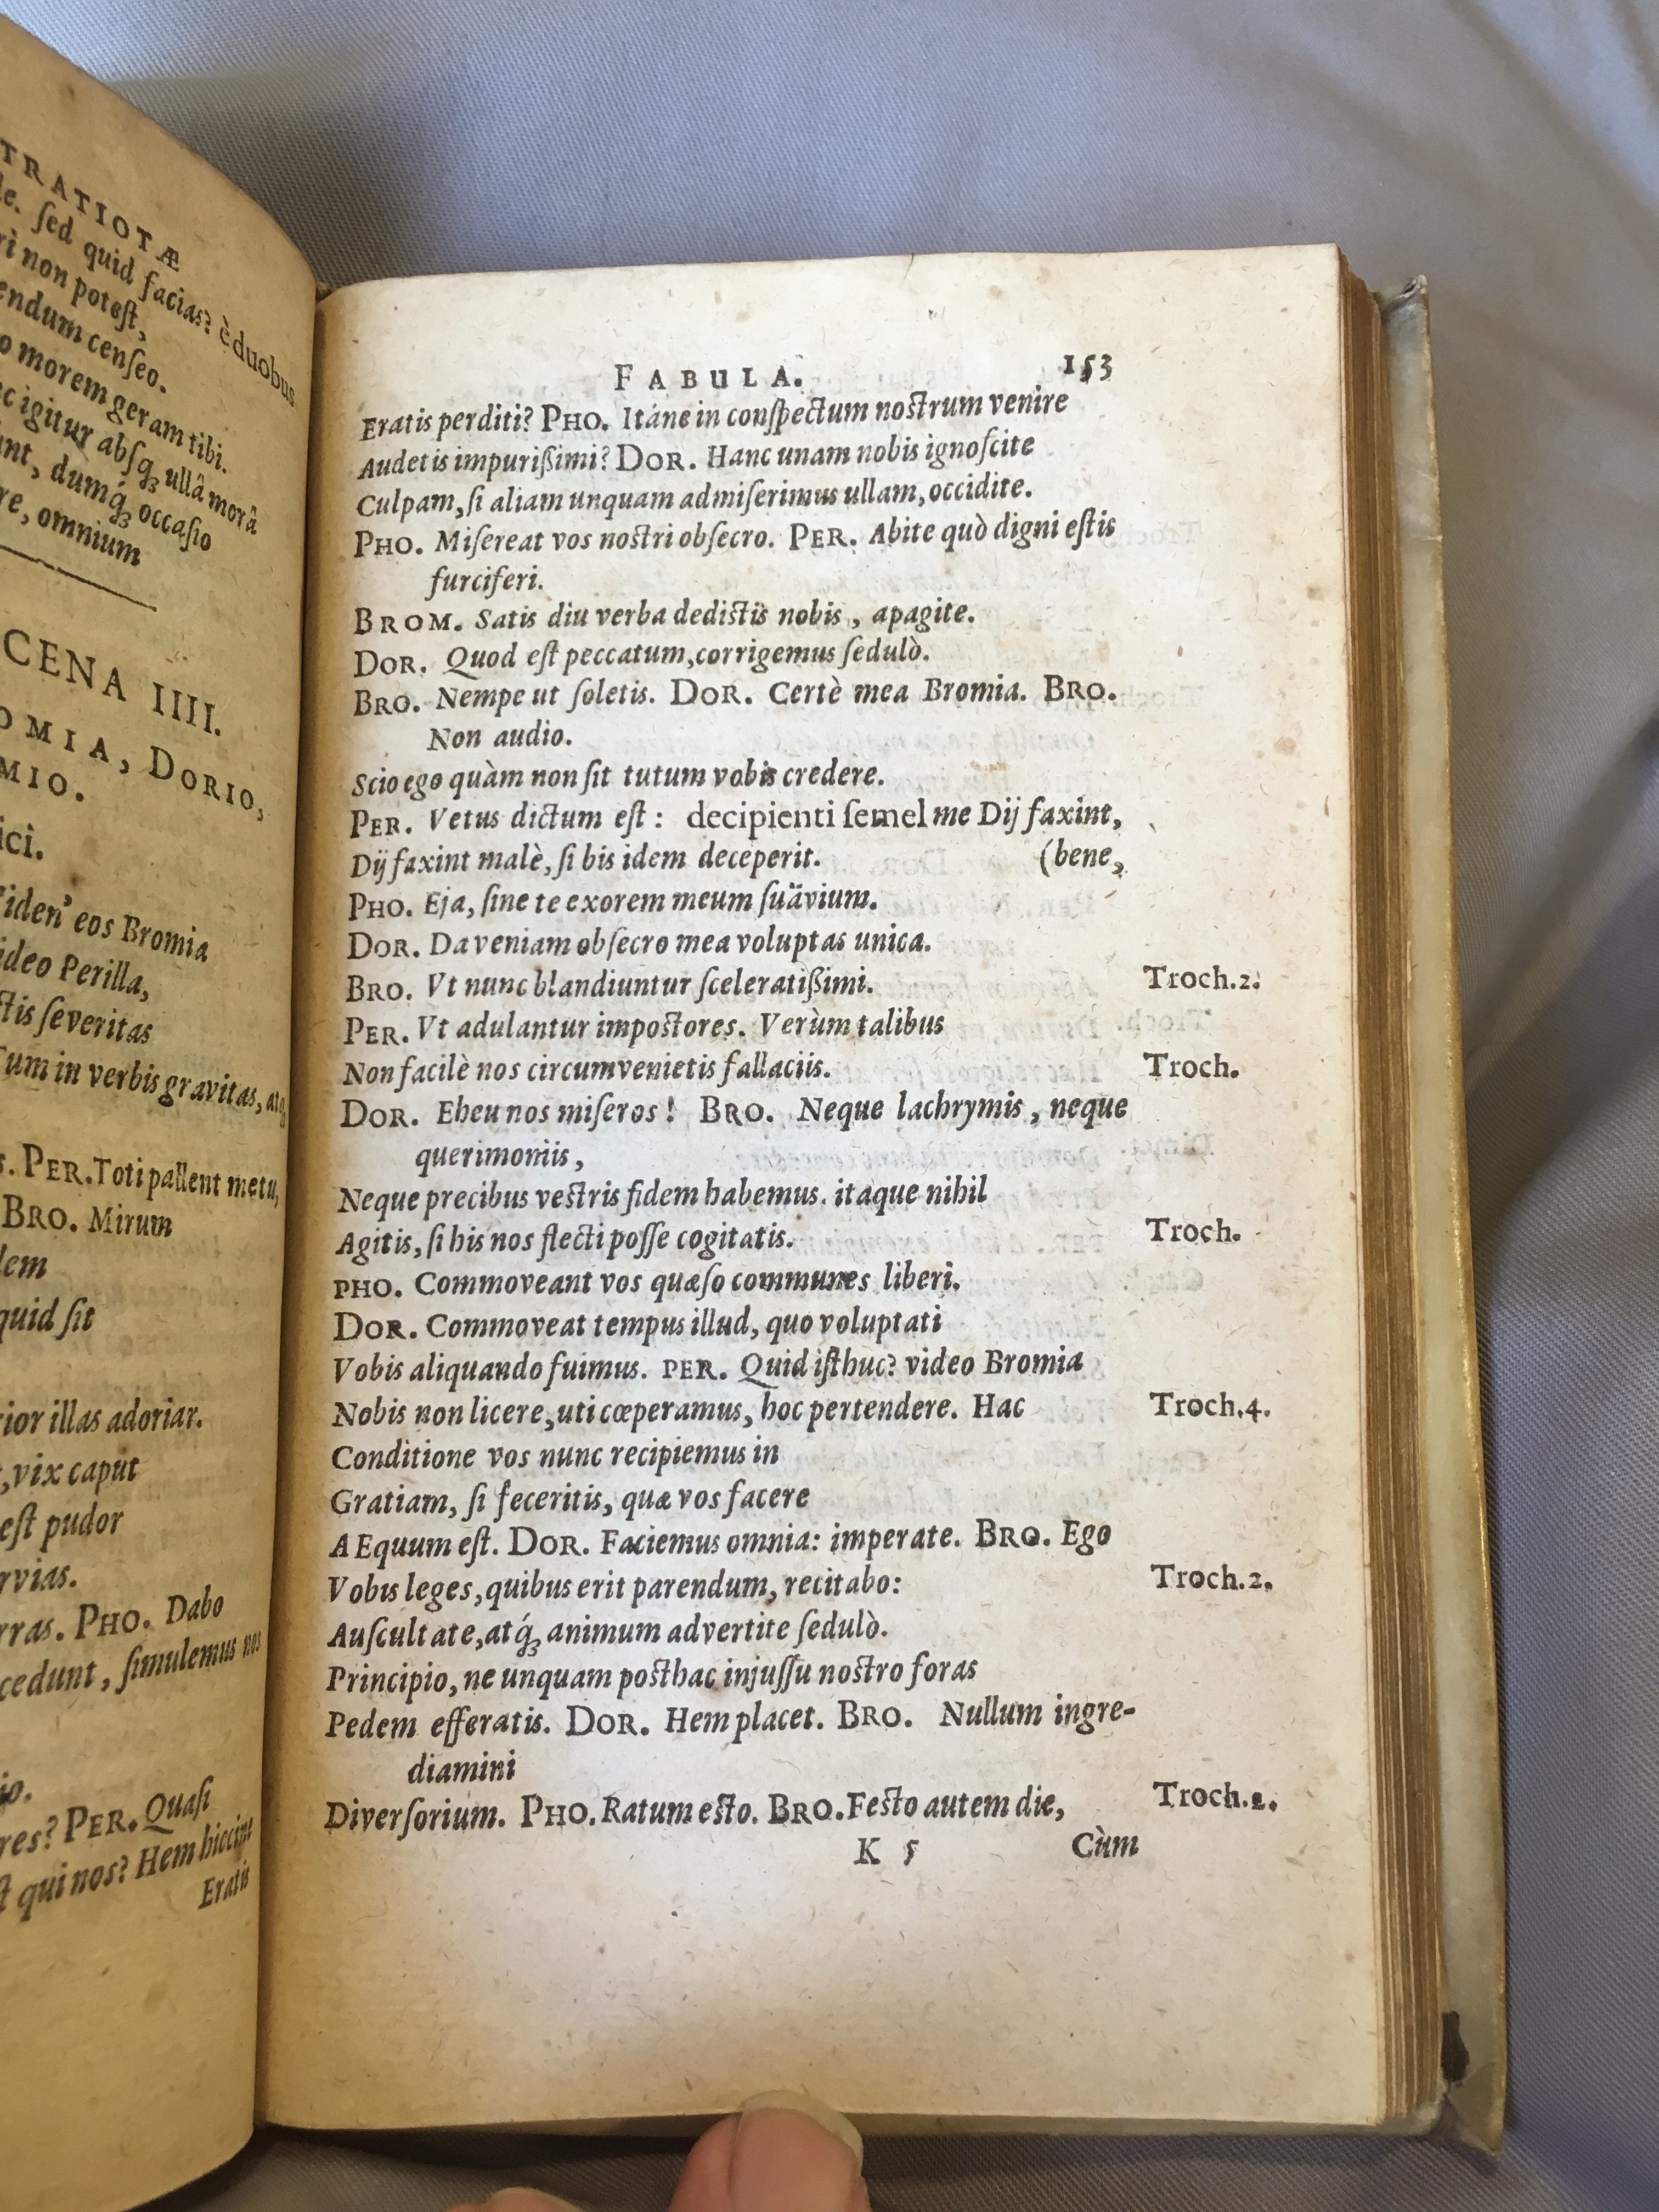 TRATIOTÆ
le. ſed quid facias? è duobus
ri non poteſt,
endum cenſeo.
o morem geram tibi.
c igitur abſq; ullâ morâ
nt, dumq́; occaſio
re, omnium
CENA IIII.
OMIA, DORIO,
MIO.
ici.
iden' eos Bromia
ideo Perilla,
ctis ſeveritas
um in verbis gravitas, atq;
s. PER. Toti pallent metu,
BRO. Mirum
dem
quid ſit
rior illas adoriar.
t, vix caput
eſt pudor
rvias.
rras. PHO. Dabo
cedunt, ſimulemus nos
io.
res? PER. Quaſi
ſt qui nos? Hem hiccine
Eratis
FABULA. 153
Eratis perditi? PHO. Itáne in conſpectum noſtrum venire
Audetis impurißimi? DOR. Hanc unam nobis ignoſcite
Culpam, ſi aliam unquam admiſerimus ullam, occidite.
PHO. Miſereat vos noſtri obſecro. PER. Abite quò digni eſtis
furciferi.
BROM. Satis diu verba dediſtis nobis, apagite.
DOR. Quod eſt peccatum, corrigemus ſedulò.
BRO. Nempe ut ſoletis. DOR. Certè mea Bromia. BRO.
Non audio.
Scio ego quàm non ſit tutum vobis credere.
PER. Vetus dictum eſt: decipienti ſemel me Dij faxint,
Dij faxint malè, ſi bis idem deceperit. (bene,
PHO. Eja, ſine te exorem meum ſuävium.
DOR. Da veniam obſecro mea voluptas unica.
BRO. Vt nunc blandiuntur ſceleratißimi. Troch.2.
PER. Vt adulantur impoſtores. Verùm talibus
Non facilè nos circumvenietis fallaciis. Troch.
DOR. Eheu nos miſeros! BRO. Neque lachrymis, neque
querimoniis,
Neque precibus veſtris fidem habemus. itaque nihil
Agitis, ſi his nos flecti poſſe cogitatis. Troch.
PHO. Commoveant vos quæſo communes liberi.
DOR. Commoveat tempus illud, quo voluptati
Vobis aliquando fuimus. PER. Quid iſthuc? video Bromia
Nobis non licere, uti cœperamus, hoc pertendere. Hac Troch.4.
Conditione vos nunc recipiemus in
Gratiam, ſi feceritis, quæ vos facere
AEquum eſt. DOR. Faciemus omnia: imperate. BRO. Ego
Vobis leges, quibus erit parendum, recitabo: Troch.2.
Auſcultate, atq́; animum advertite ſedulò.
Principio, ne unquam poſthac injuſſu noſtro foras
Pedem efferatis. DOR. Hem placet. BRO. Nullum ingre-
diamini
Diverſorium. PHO. Ratum eſto. BRO. Feſto autem die, Troch.2.
K 5 Cùm